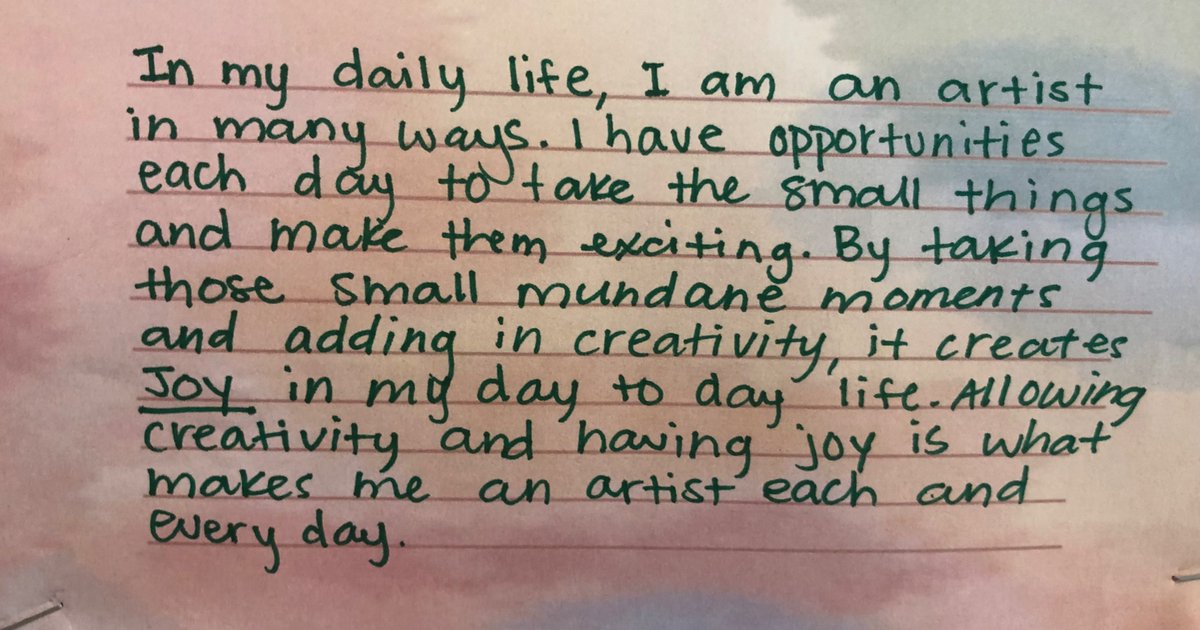 In my daily life, I am an artist
in many ways. I have opportunities
each day to take the small things
and make them exciting. By taking
those small mundane moments
and adding in creativity, it creates
Joy in my day to day life. Allowing
creativity and having joy is what
makes me an artist each and
every day.